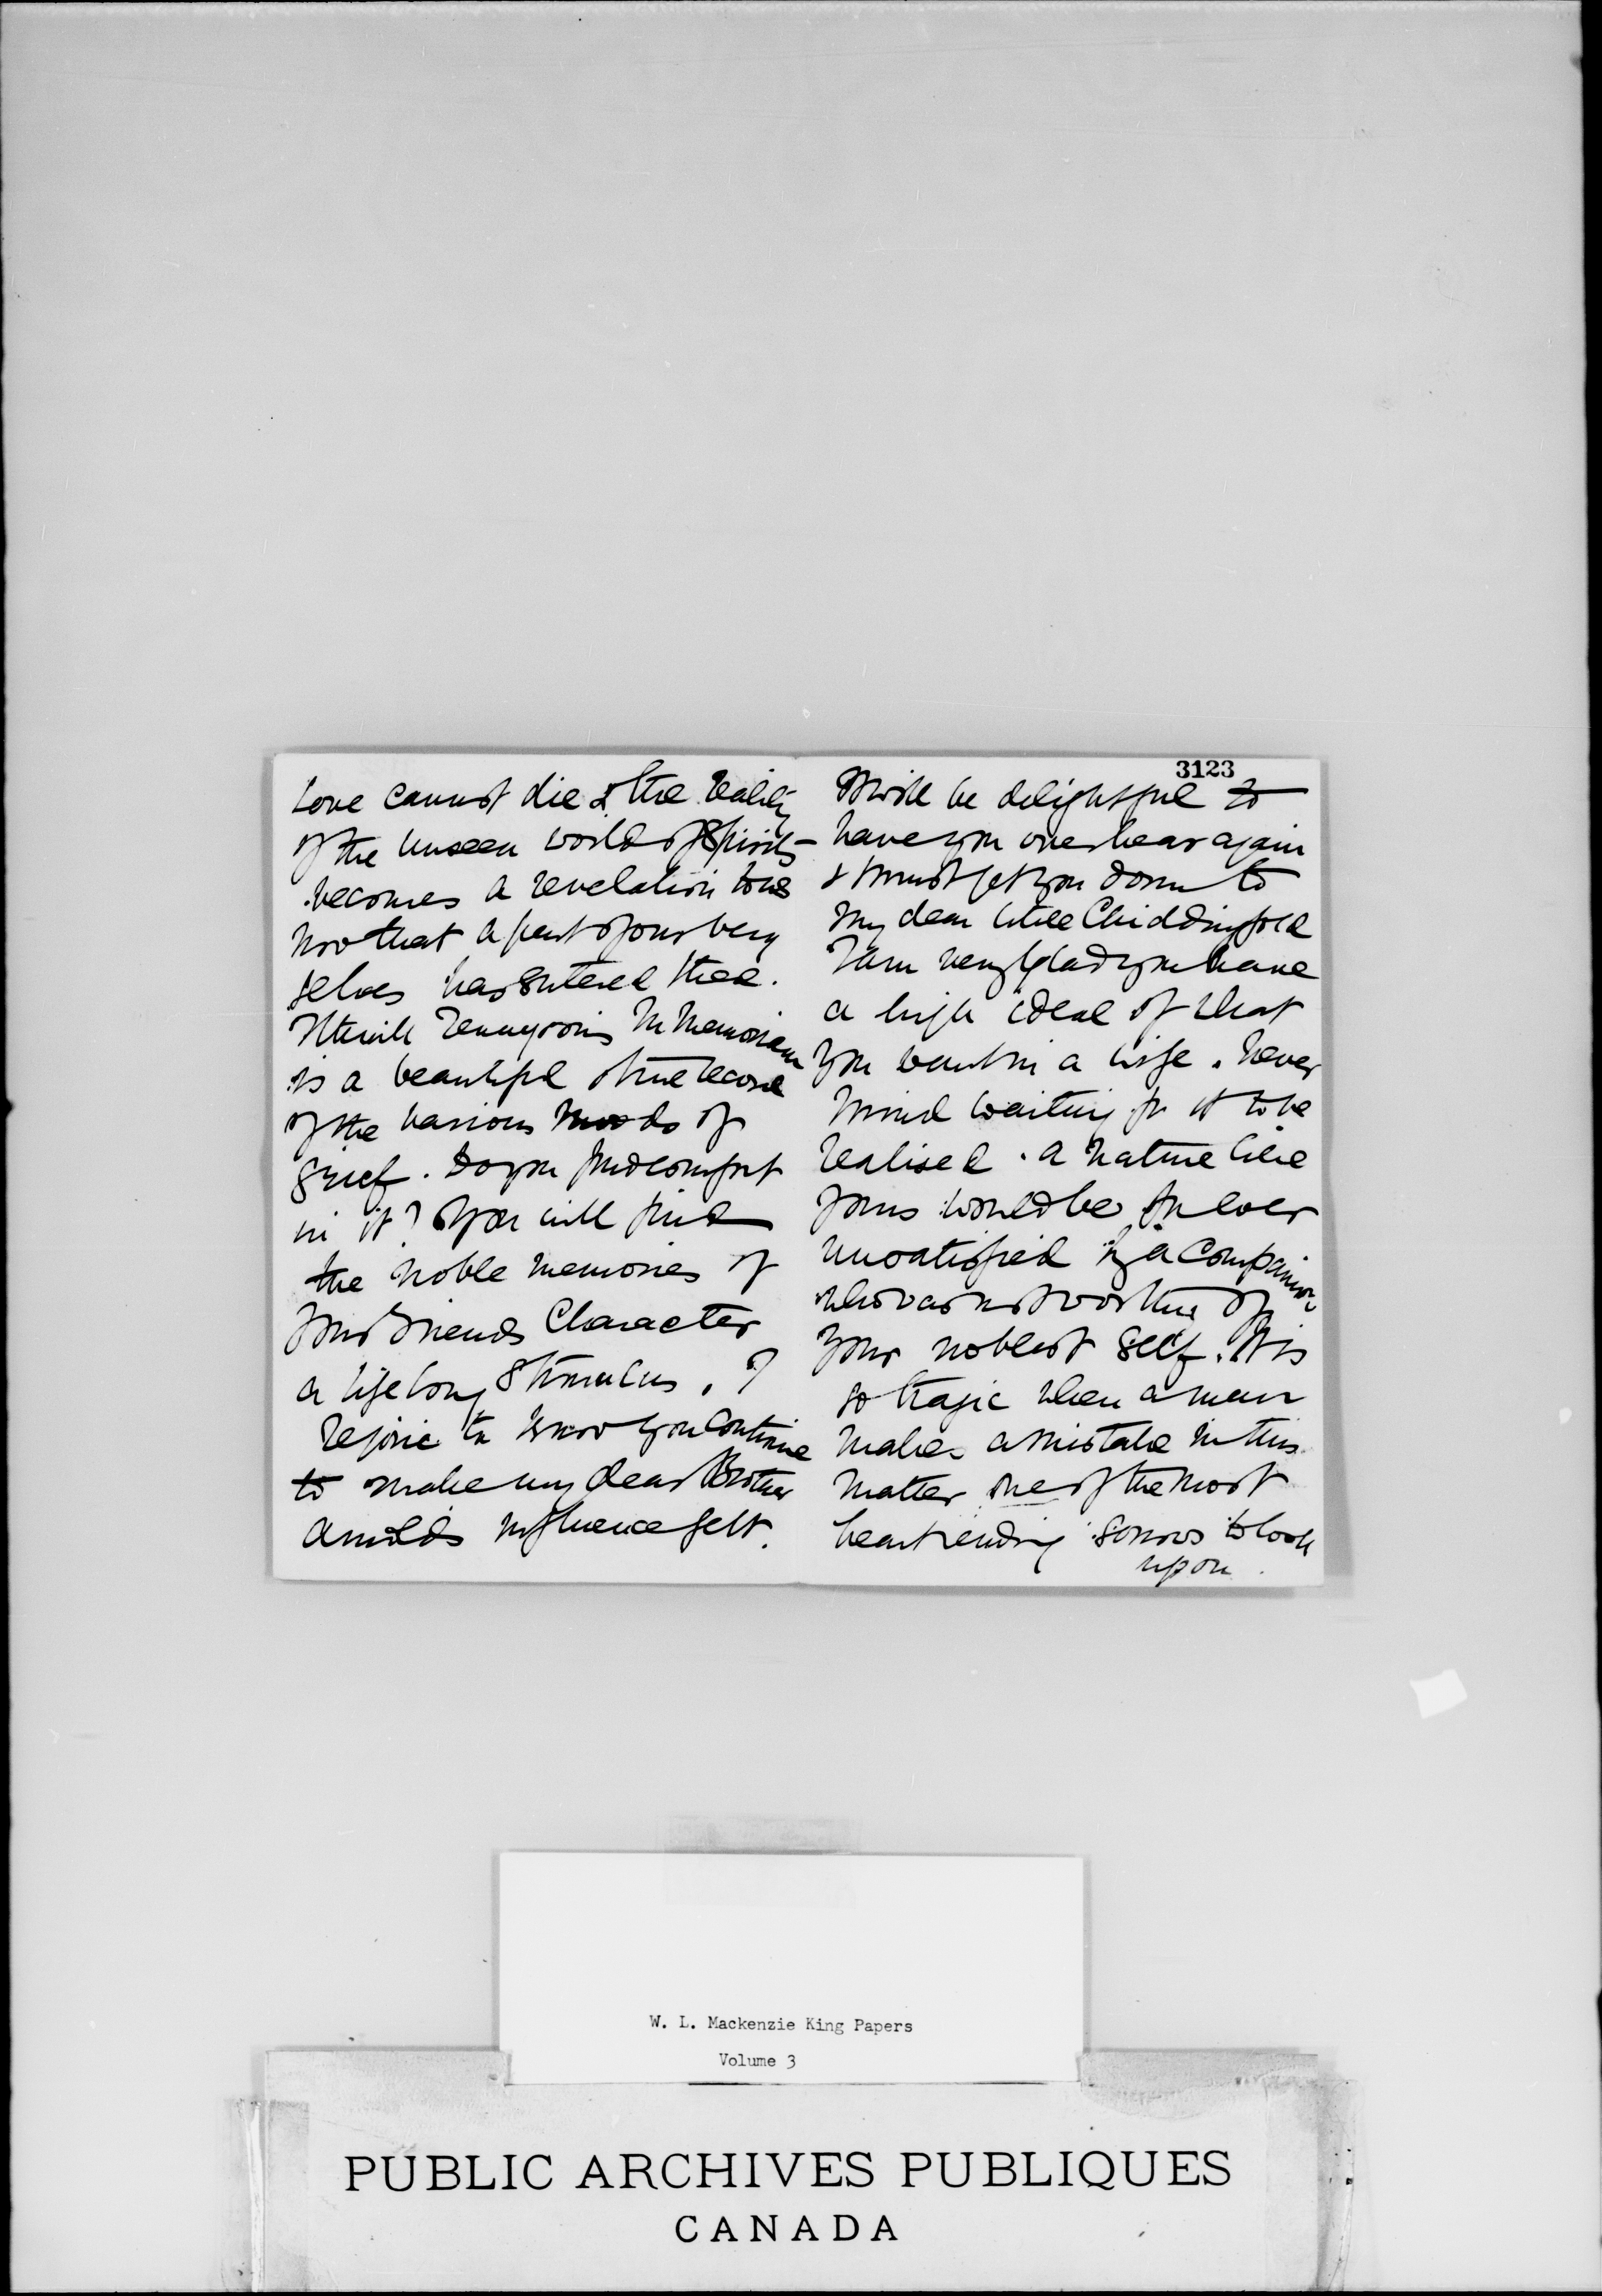 Love cannot die & the reality
of the unseen world of Spirits
becomes a revelation to us
now that a part of our very
selves has entered there.
I think Tennyson's In Memoriam
is a beautiful & true record
of the various moods of
grief. Do you find comfort
in it? You will find
the noble memories of
your friends Character
a life long Stimulus. I
rejoice to know you continue
to make my dear Brother
Arnolds influence felt.
3123
It will be delightful to
have you over here again
& I must get you down to
my dear little Chiddingfold
I am very glad you have
a high ideal of what
you want in a wife. Never
mind waiting for it to be
realised. A nature like
yours would be for ever
unsatisfied by a companion
who was not worthy of
your noblest self. It is
so tragic when a man
makes a mistake in this
matter one of the most
heart rending sorrows to look
upon.
W. L. Mackenzie King Papers
Volume 3
PUBLIC ARCHIVES PUBLIQUES
CANADA